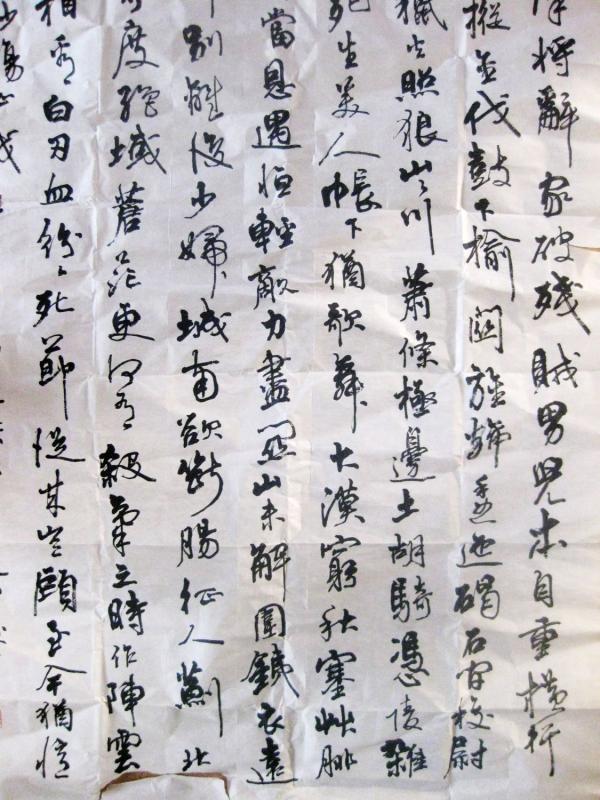 將辭家破殘賊男兒本自重橫行
摐金伐鼓下榆關旌旆逶迤碣石間校尉
獵火照狼山山川蕭條極邊土胡騎憑陵雜
死生美人帳下猶歌舞大漠窮秋塞艸腓
當恩遇恒輕敵力盡關山未解圍鐵衣遠
別離後少婦城南欲斷腸征人薊北
可度絕域蒼茫更何有殺氣三時作陣雲
相看白刃血紛紛死節從來豈顧至今猶憶